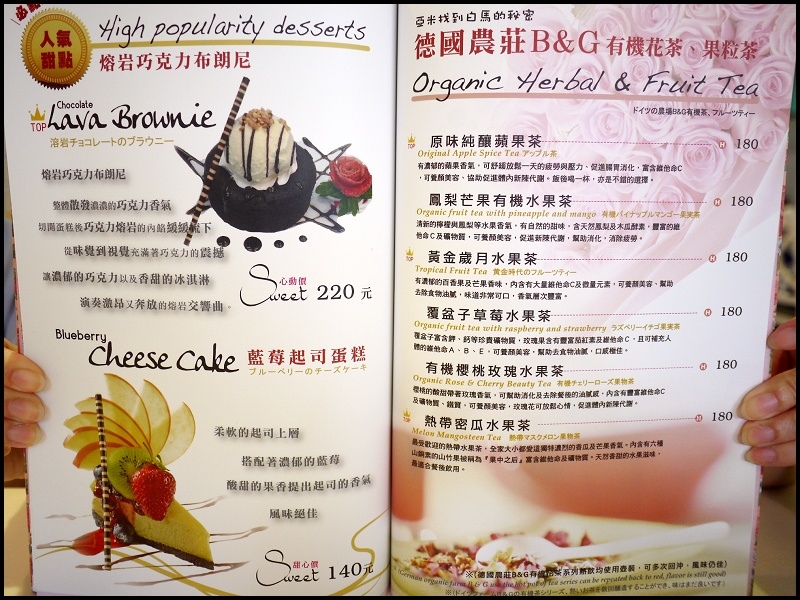 必點
人氣
甜點
High popularity desserts
熔岩巧克力布朗尼
Chocolate
TOP Lava Brownie
溶岩チョコレートのブラウニー
熔岩巧克力布朗尼
整體散發濃濃的巧克力香氣
切開蛋糕後巧克力熔岩的內餡緩緩流下
從味覺到視覺充滿著巧克力的震撼
讓濃郁的巧克力以及香甜的冰淇淋
演奏激昂又奔放的熔岩交響曲。
心動價
Sweet 220 元
Blueberry
Cheese Cake 藍莓起司蛋糕
ブルーベリーのチーズケーキ
柔軟的起司上層
搭配著濃郁的藍莓
酸甜的果香提出起司的香氣
風味絕佳
甜心價
Sweet 140 元
亞米找到白馬的秘密
德國農莊B&G 有機花茶、果粒茶
Organic Herbal & Fruit Tea
ドイツの農場B&G有機茶、フルーツティー
TOP 原味純釀蘋果茶 H 180
Original Apple Spice Tea アップル茶
有濃郁的蘋果香氣，可舒緩放鬆一天的疲勞與壓力、促進腸胃消化，富含維他命C
，可養顏美容、協助促進體內新陳代謝。飯後喝一杯，亦是不錯的選擇。
鳳梨芒果有機水果茶 H 180
Organic fruit tea with pineapple and mango 有機パイナップルマンゴー果実茶
清新的檸檬與鳳梨等水果香氣，有自然的甜味，含天然鳳梨及木瓜酵素，豐富的維
他命C及礦物質，可養顏美容，促進新陳代謝，幫助消化，消除疲勞。
TOP 黃金歲月水果茶 H 180
Tropical Fruit Tea 黃金時代のフルーツティー
有濃郁的百香果及芒果香味，內含有大量維他命C及微量元素，可養顏美容、幫助
去除食物油膩，味道非常可口，香氣層次豐富。
覆盆子草莓水果茶 H 180
Organic fruit tea with raspberry and strawberry ラズベリーイチゴ果実茶
覆盆子富含鉀、鈣等珍貴礦物質，玫瑰果含有豐富茄紅素及維他命C，且可補充人
體的維他命A、B、E，可養顏美容，幫助去食物油膩，口感極佳。
有機櫻桃玫瑰水果茶 H 180
Organic Rose & Cherry Beauty Tea 有機チェリーローズ果物茶
櫻桃的酸甜帶著玫瑰香氣，可幫助消化及去除餐後的油膩感，內含有豐富維他命C
及礦物質、鐵質，可養顏美容，玫瑰花可放鬆心情，促進體內新陳代謝。
TOP 熱帶密瓜水果茶 H 180
Melon Mangosteen Tea 熱帶マスクメロン果物茶
最受歡迎的熱帶水果茶，全家大小都愛這獨特濃烈的香瓜及芒果香氣。內含有六種
山酮素的山竹果被稱為『果中之后』富含維他命及礦物質。天然香甜的水果滋味，
最適合餐後飲用。
※(德國農莊B&G有機花茶系列熱飲均使用壺裝，可多次回沖，風味仍佳)